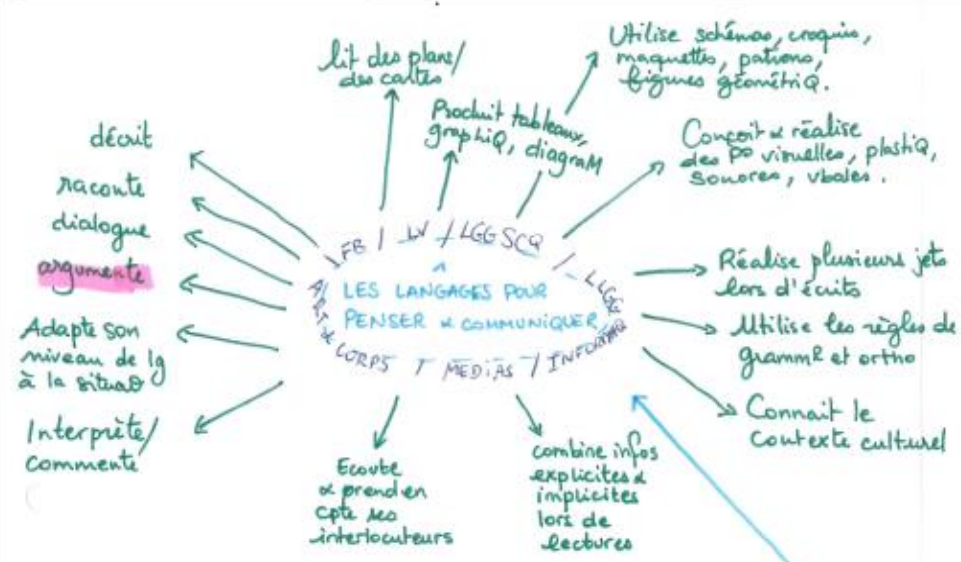 lit des plans/
des cartes
Produit tableaux,
graphiQ, diagraM
Utilise schémas, croquis,
maquettes, patrons,
figures géométriQ.
Conçoit & réalise
des P° visuelles, plastiQ,
sonores, vbales.
décrit
raconte
dialogue
argumente
Adapte son
niveau de lg
à la situa°
Interprète/
commente
LFB / LV / LGG SCQ / LLGG
INFORMAQ
ART & CORPS / MEDIAS /
LES LANGAGES POUR
PENSER & COMMUNIQUER
Réalise plusieurs jets
lors d'écrits
Utilise les règles de
grammR et ortho
Connait le
contexte culturel
Ecoute
& prend en
cpte ses
interlocuteurs
combine infos
explicites &
implicites
lors de
lectures